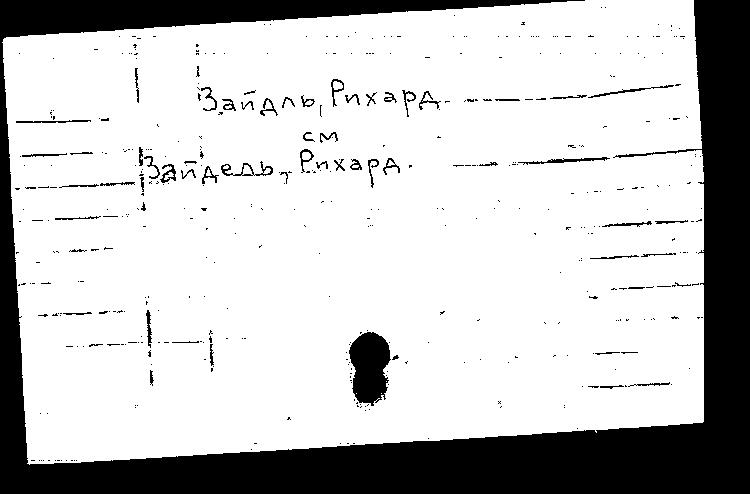 Зайдль, Рихард.
см
Зайдель, Рихард.